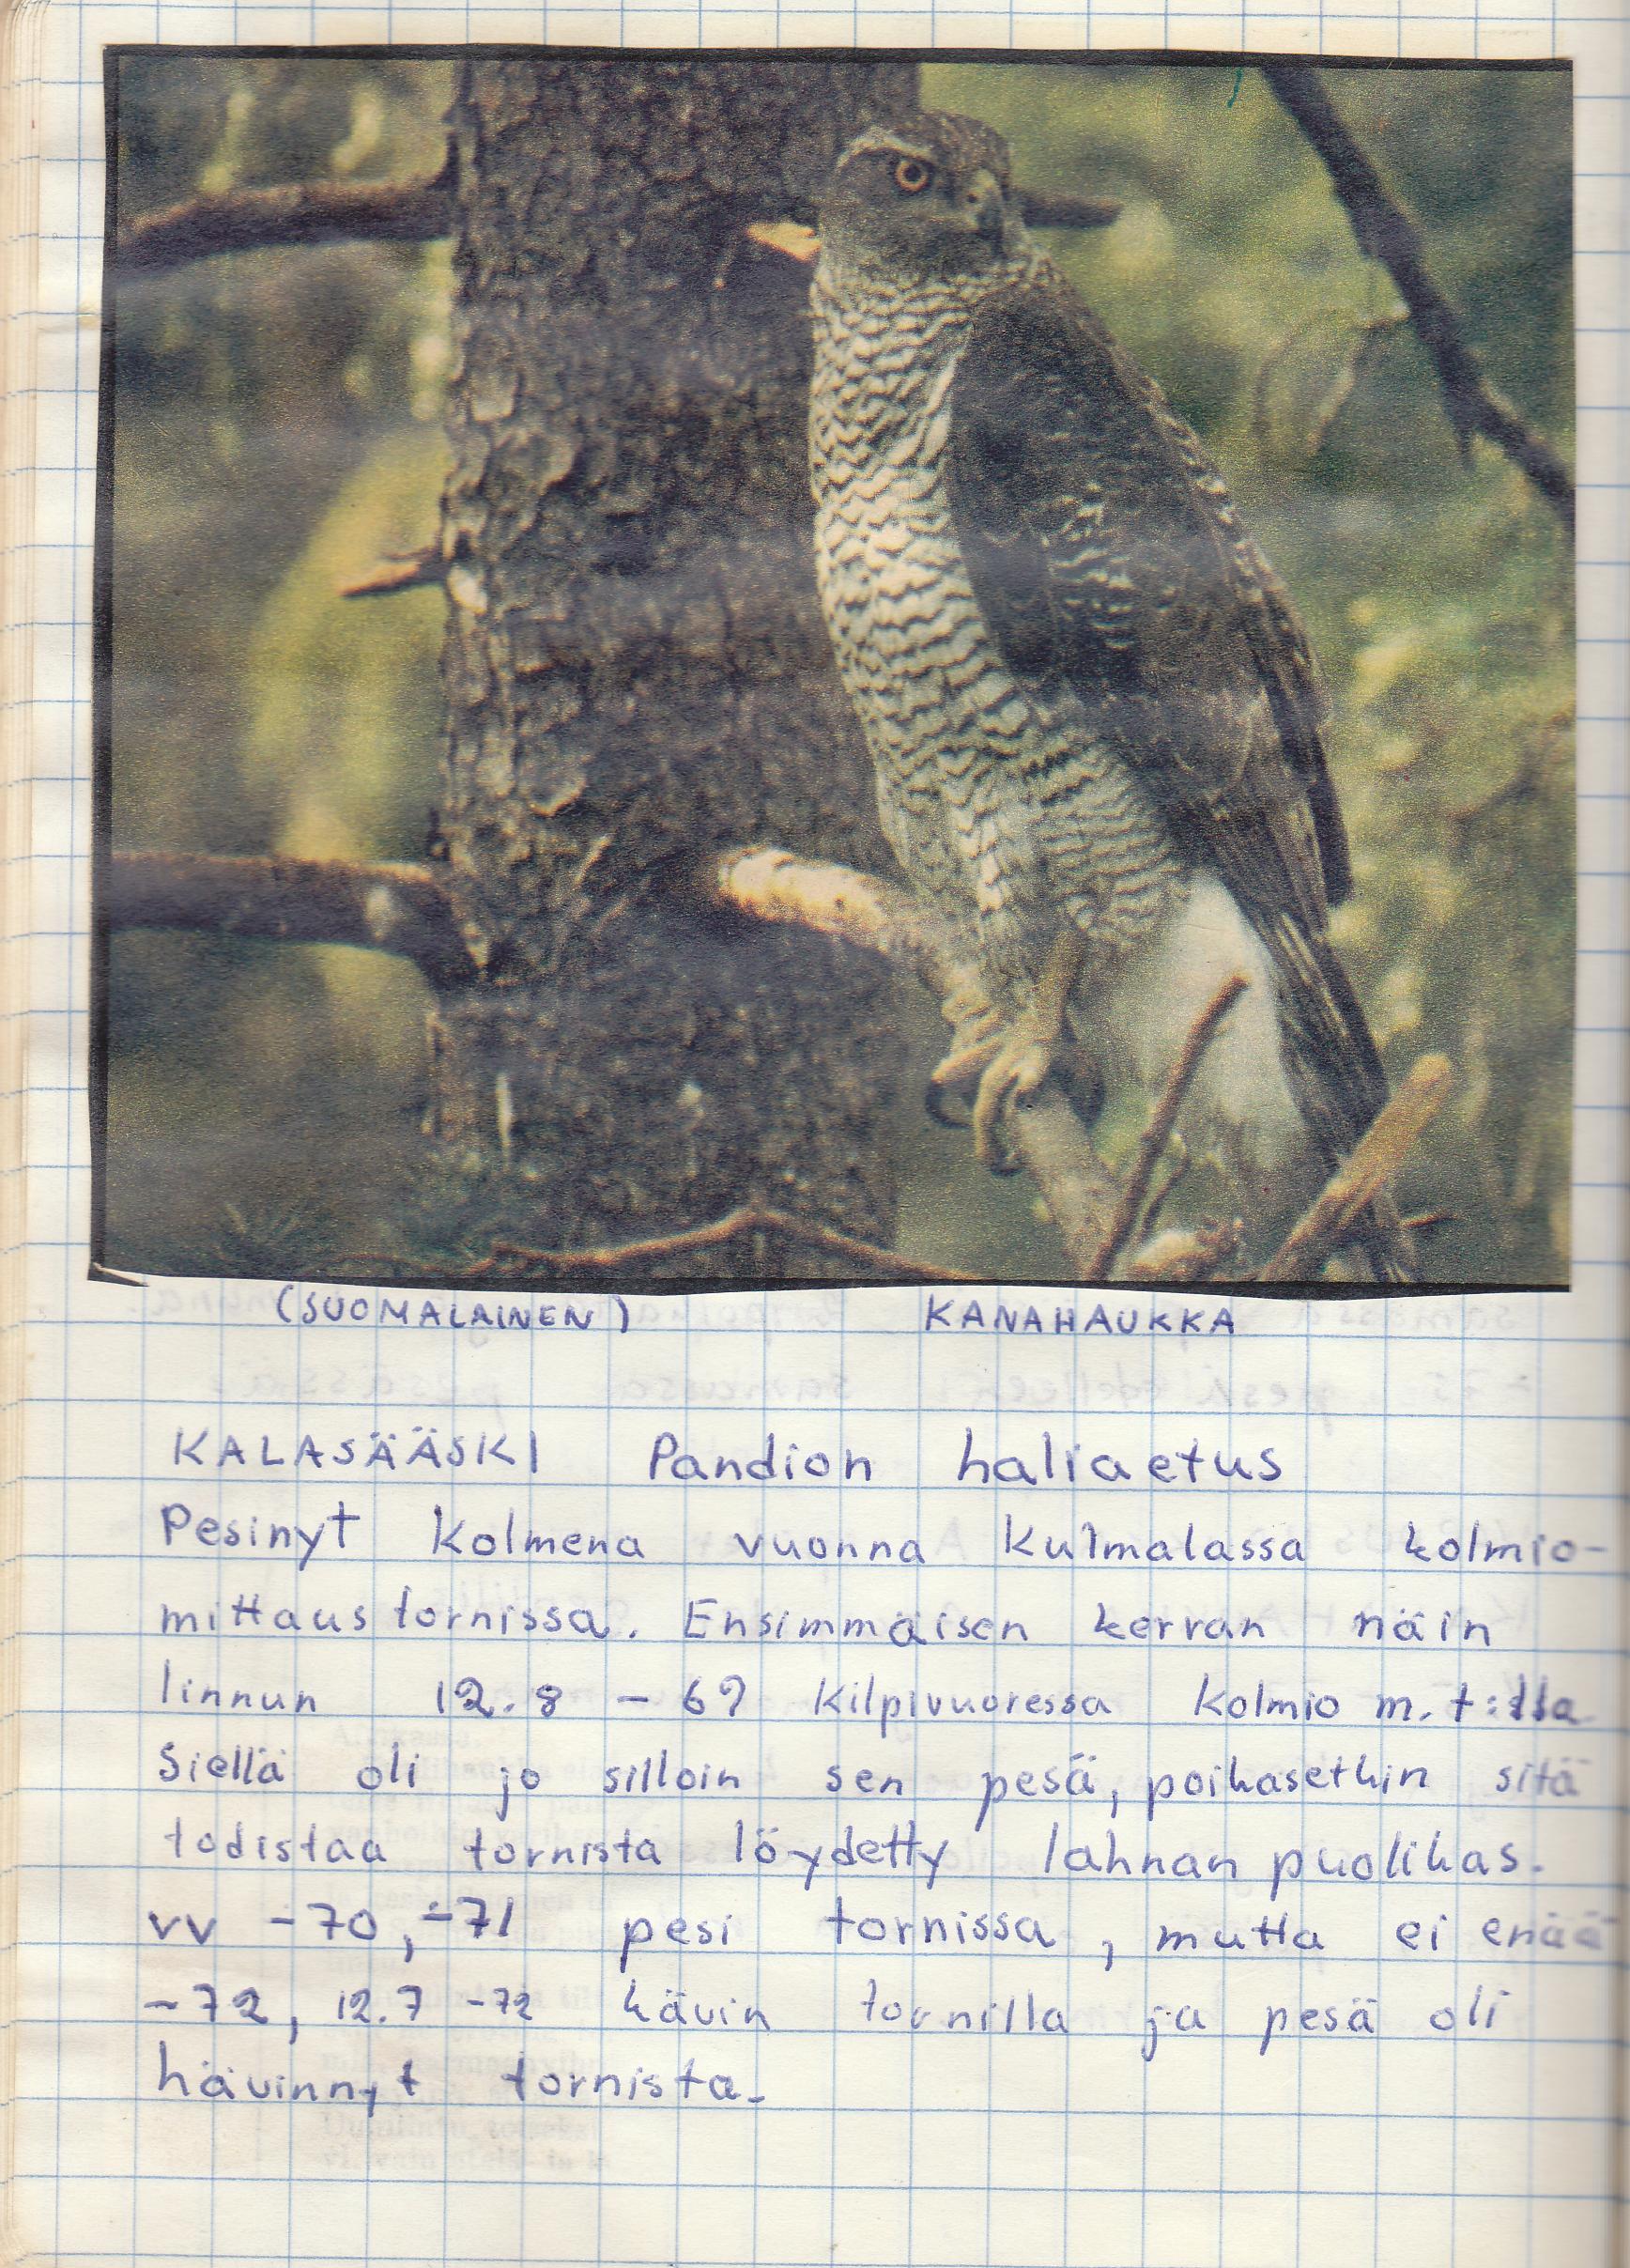 (SUOMALAINEN) KANAHAUKKA
KALASÄÄSKI Pandion haliaetus
Pesinyt kolmena vuonna Kulmalassa kolmio-
mittaustornissa. Ensimmäisen kerran näin
linnun 12.8 - 69 Kilpivuoressa kolmio m.t:lla
Siellä oli jo silloin sen pesä, poikasetkin sitä
todistaa tornista löydetty lahnan puolikas.
vv -70, -71 pesi tornissa, mutta ei enää
-72, 12.7 -72 kävin tornilla ja pesä oli
hävinnyt tornista.